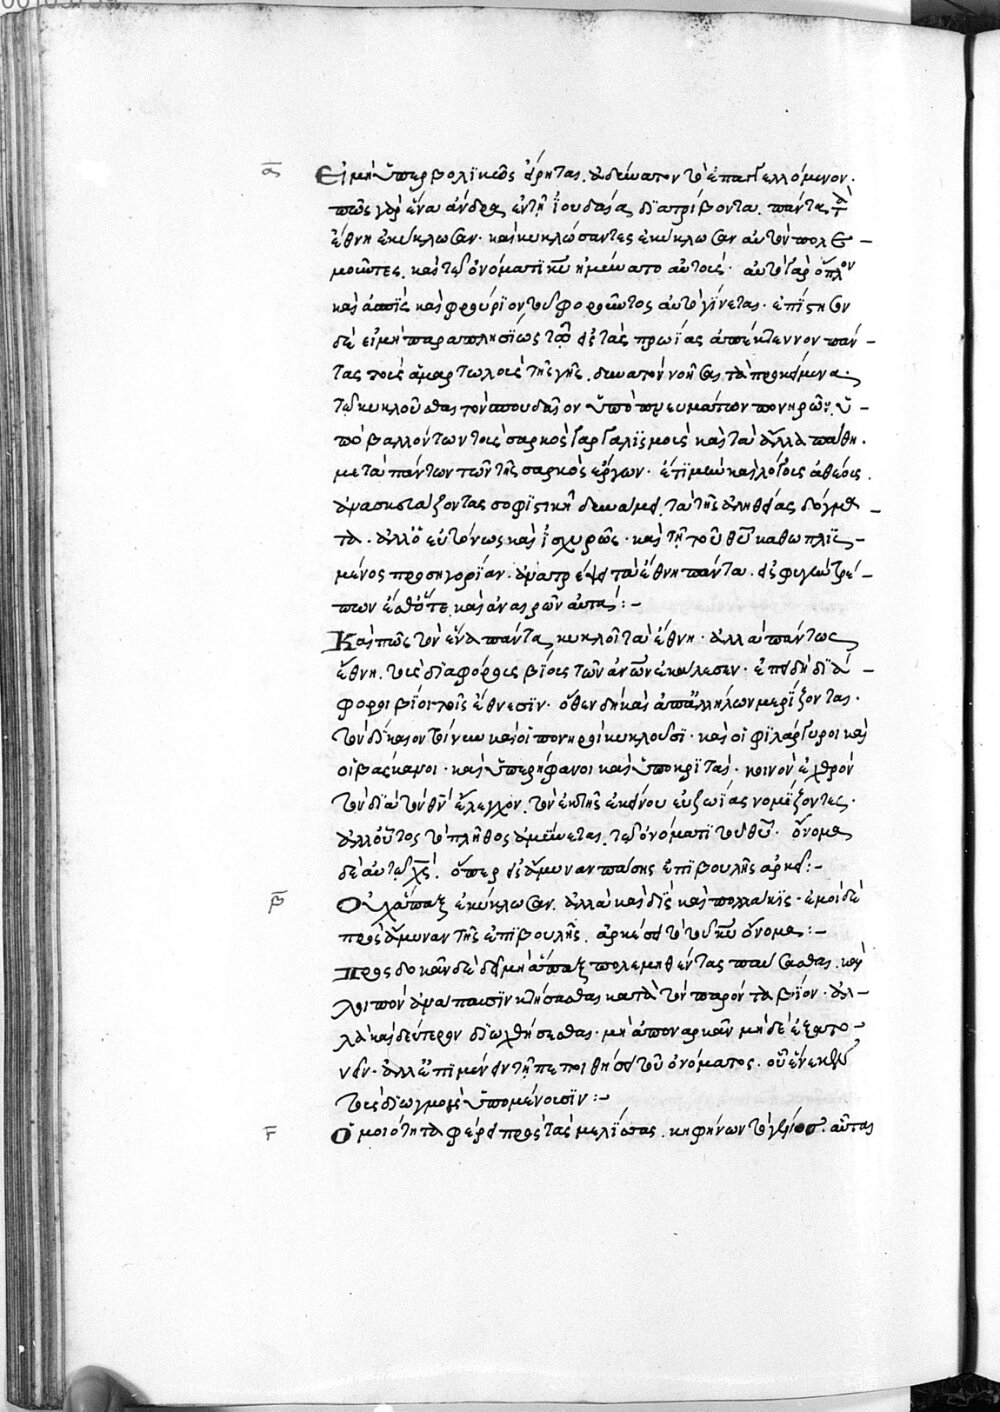 α Εἰ μὴ ὑπερβολϊκῶς εἴρηται. ἀδύνατον τὸ ἐπαγγελλόμενον.
πῶς γὰρ ἕνα ἄνδρα ἐν τῇ ἰουδαία διατρίβοντα. πάντα τὰ
ἔθνη ἐκύκλωσαν. καὶ κυκλώσαντες ἐκύκλωσαν αὐτὸν πολε-
μοῦντες. καὶ τῷ ὀνόματϊ κυ ἠμύνατο αὐτούς. αὐτὸ γὰρ ὅπλον
καὶ ἀσπὶς καὶ φρούρϊον τοῦ φοροῦντος αὐτὸ γίνεται. ἐπίστησον
δὲ εἰ μὴ παραπλησΐως τῶ εἰς τὰς πρωΐας ἀπέκτεννον πάν-
τας τοὺς ἁμαρτωλοὺς τῆς γῆς. δυνατὸν νοῆσαι τὰ προκείμενα.
τῷ κυκλοῦσθαι τὸν σπουδαῖον ὑπὸ πνευμάτων πονηρῶν. ὑ-
ποβαλλόντων τοὺς σαρκὸς γαργαλϊσμοὺς καὶ τὰ ἄλλα πάθη.
μετὰ πάντων τῶν τῆς σαρκὸς ἔργων. ἔτϊ μὴν καὶ λόγοις ἀθέοις.
ἀνασκευάζοντας σοφϊστικῇ δυνάμει. τὰ τῆς ἀληθείας δόγμα-
τα. ἀλλ' ὁ εὐτόνως καὶ ἰσχυρῶς. καὶ τὴν τοῦ θυ καθωπλϊσ-
μένος προσηγορΐαν. ἀνατρέψει τὰ ἔθνη πάντα. εἰς φυγὴν τρέ-
πων ἔσθ' ὅτε καὶ ἀναιρῶν αὐτά:-
Καὶ πῶς τὸν ἕνα πάντα κυκλοῖ τὰ ἔθνη. ἀλλὰ πάντως
ἔθνη. τοὺς διαφόρους βΐους τῶν ἀνων ἐκάλεσεν. ἐπειδὴ δϊά-
φοροι βΐοι τοῖς ἔθνεσϊν. ὅθεν δὴ καὶ ἀπ' ἀλλήλων μερΐζονται.
τὸν δίκαιον τοίνυν καὶ οἱ πονηροὶ κυκλοῦσϊ. καὶ οἱ φϊλάργυροι καὶ
οἱ βάσκανοι. καὶ ὑπερήφανοι καὶ ὑποκριταὶ. κοινὸν ἐχθρὸν
τὸν δϊὰ τὸν θν ἔλεγχον. τὸν ἐκ τῆς ἐκείνου εὐζωΐας νομΐζοντες.
ἀλλ' οὗτος τὸ πλῆθος ἀμύνεται τῷ ὀνόματϊ τοῦ θυ. ὄνομα
δὲ αὐτῷ χς. ὅπερ εἰς ἄμυναν πάσης ἐπϊβουλῆς ἀρκεῖ:-
β Οὐχ ἅπαξ ἐκύκλωσαν. ἀλλὰ καὶ δὶς καὶ πολλάκϊς. ἐμοὶ δὲ
πρὸς ἄμυναν τῆς ἐπϊβουλῆς. ἀρκέσει τὸ τοῦ κυ ὄνομα:-
Προσδοκᾶν δὲ δεῖ μὴ ἅπαξ πολεμηθέντας παύσασθαι. καὶ
λοιπὸν ἀνάπαυσϊν κτήσασθαι κατὰ τὸν παρόντα βΐον. ἀλ-
λὰ καὶ δεύτερον διωχθήσεσθαι. μὴ ἀποναρκᾶν μηδὲ ἐξατο-
νεῖν. ἀλλ' ἐπϊμένειν τῇ πεποιθήσει τοῦ ὀνόματος. οὗ ἕνεκεν
τοὺς διωγμοὺς ὑπομένουσϊν:-
γ Ὁμοιότητα φέρει πρὸς τὰς μελΐσσας. κηφήνων τὸ γένος. αὗται